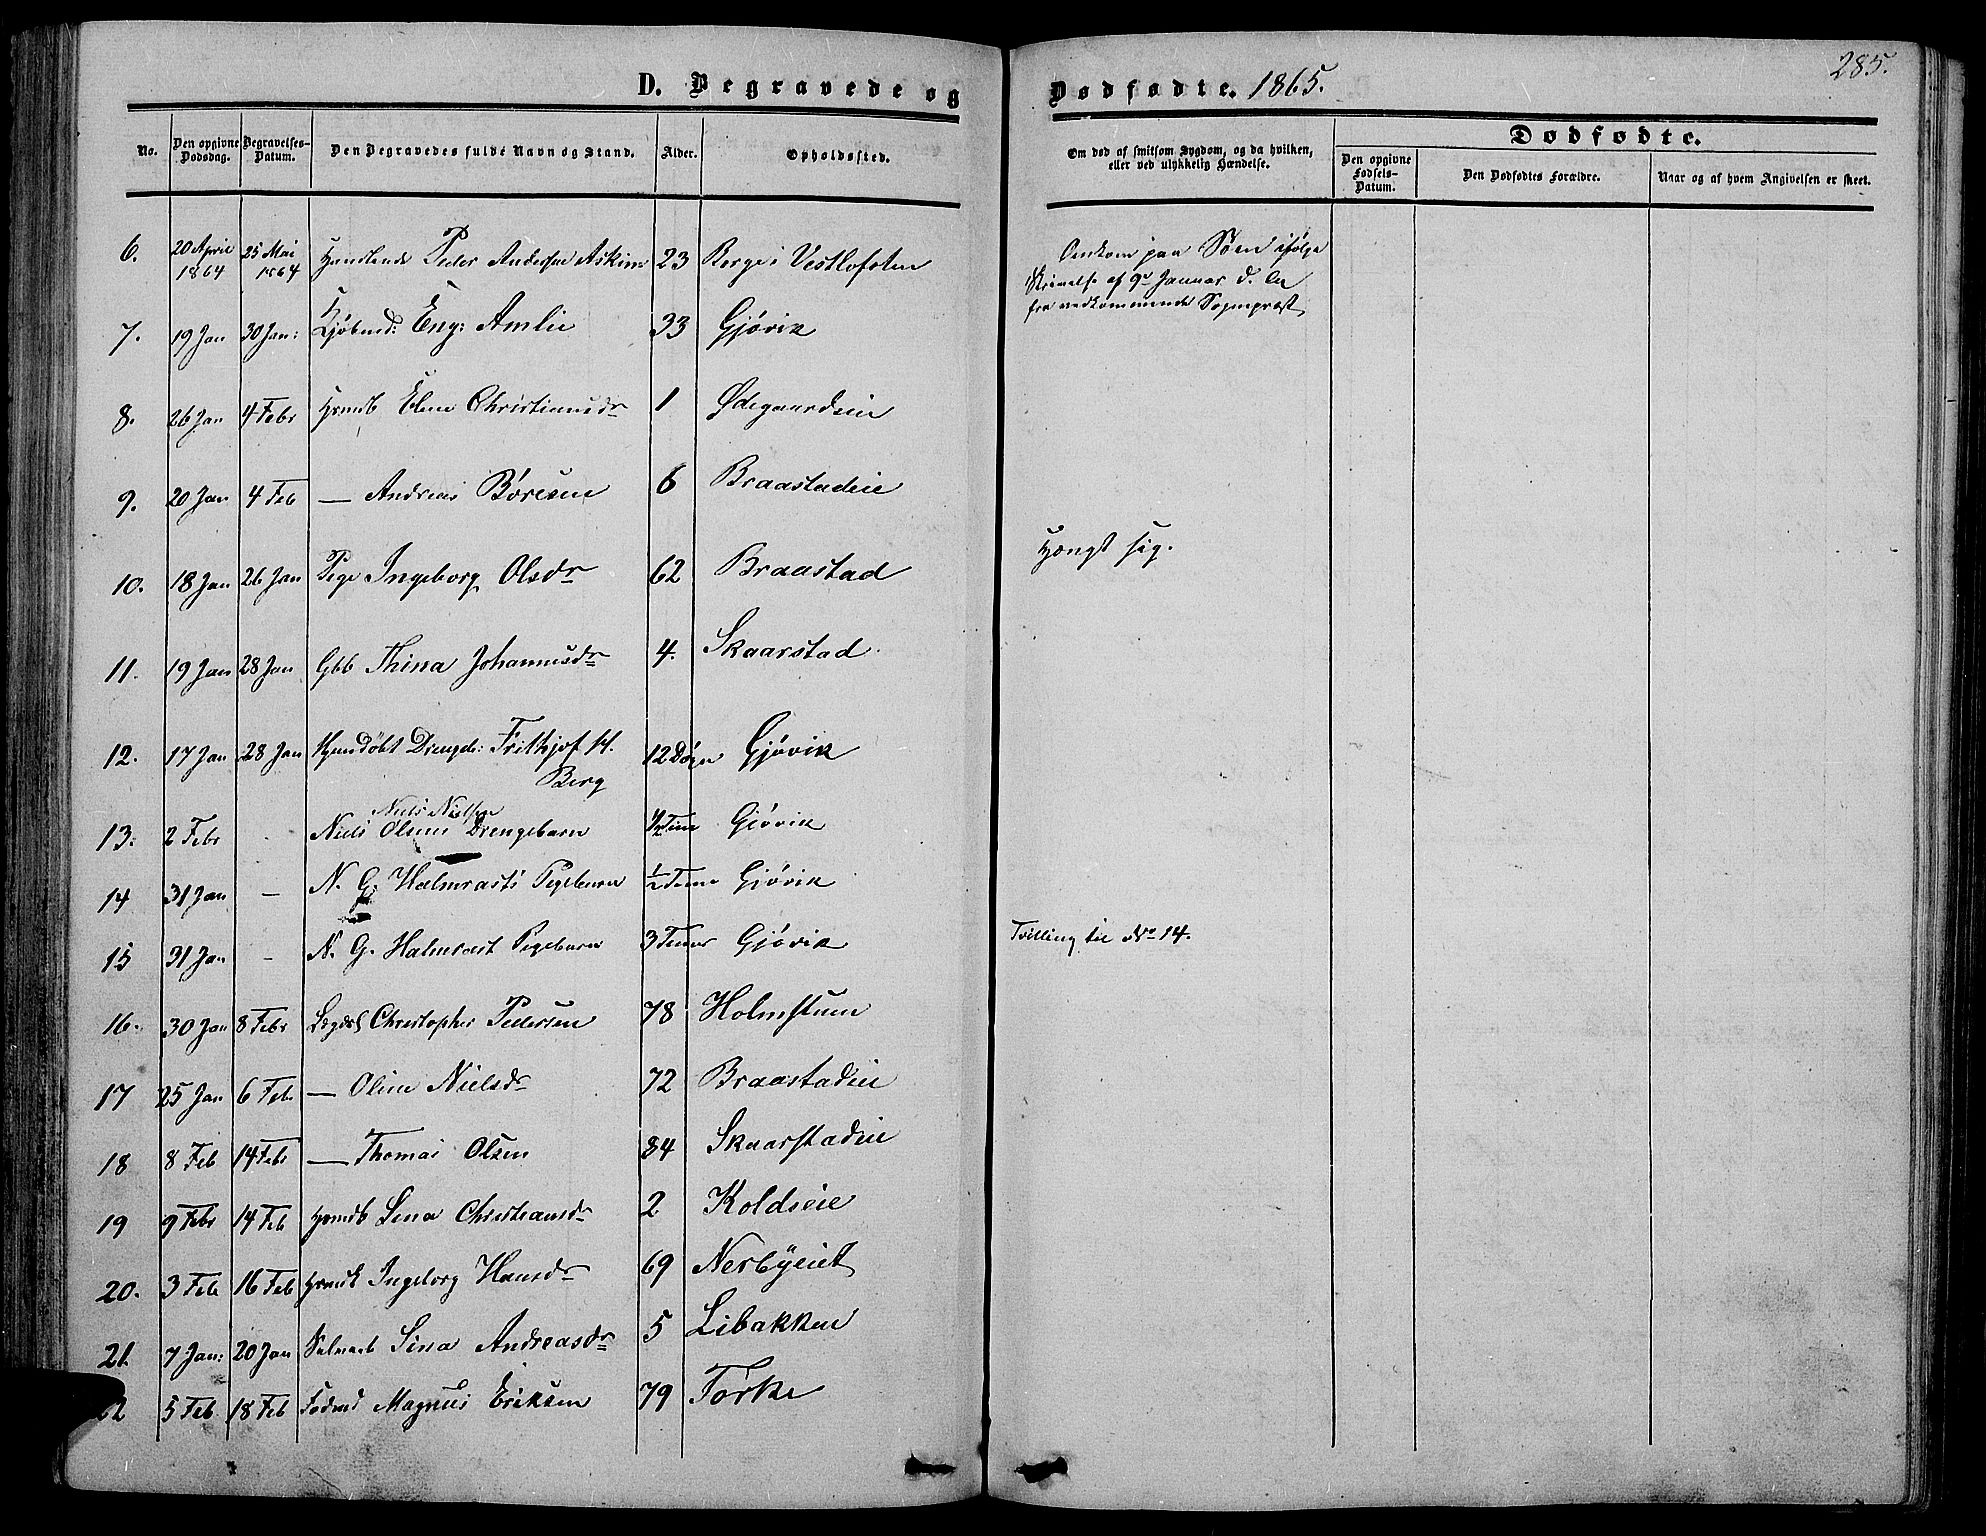 285.
D. Begravede og Dødfødte. 1865.
No. | Den opgivne Dødsdag. | Begravelses-Datum. | Den Begravedes fulde Navn og Stand. | Alder. | Opholdssted. | Om død af smitsom Sygdom, og da hvilken, eller ved ulykkelig Hændelse. | Dødfødte. | Den opgivne Fødsels-Datum. | Den Dødfødtes Forældre. | Naar og af hvem Angivelsen er skeet.
6. 20 April 1864 25 Mai 1864 Handlende Peder Andersen 23 Borge i Vestlofoten Omkom paa Søen ifølge
Skrivelse af 9de Januar d. A.
fra vedkommende Sognepræst
7. 19 Jan 30 Jan: Kjøbmd: Eng: Amlie 33 Gjøvik
8. 26 Jan 4 Febr Hsmdb Elene Christiansdr 1 Ødegaardseie
9. 20 Jan 4 Feb — Andreas Børesen 6 Braastadeie
10. 18 Jan 26 Jan Pige Ingeborg Olsdr 62 Braastad Hængt sig.
11. 19 Jan 28 Jan Gbb Thina Johannesdr 4. Skaarstad
12. 17 Jan 28 Jan Hjemdøbt Drengeb: Frithjof H. 12 Døgn Gjøvik
Berg
Niels Nielsen
13. 2 Febr - Niels Olsens Drengebarn ½ Time Gjøvik
14 31 Jan - N. G. Halmrasts Pigebarn ½ Time Gjøvik
15 31 Jan - N. G. Halmrast Pigebarn 3 Timer Gjøvik Tvilling til No 14.
16. 30 Jan 8 Febr Lægdsl Christopher Pedersen 78 Holmstuen
17 25 Jan 6 Feb. — Oline Nielsdr 72 Braastadeie
18 8 Feb 14 Febr — Thomas Olsen 84 Skaarstadeie
19 9 Febr 14 Feb Hsmdb Lena Christiansdr 2 Koldseie
20. 3 Feb 16 Feb Hsmdk Ingeborg Hansdr 69 Nerbyeiet
21. 7 Jan: 20 Jan Selveb Sina Andreasdr 5 Libakken
22 5 Feb 18 Feb Føderd Magnus Eriksen 79 Torke